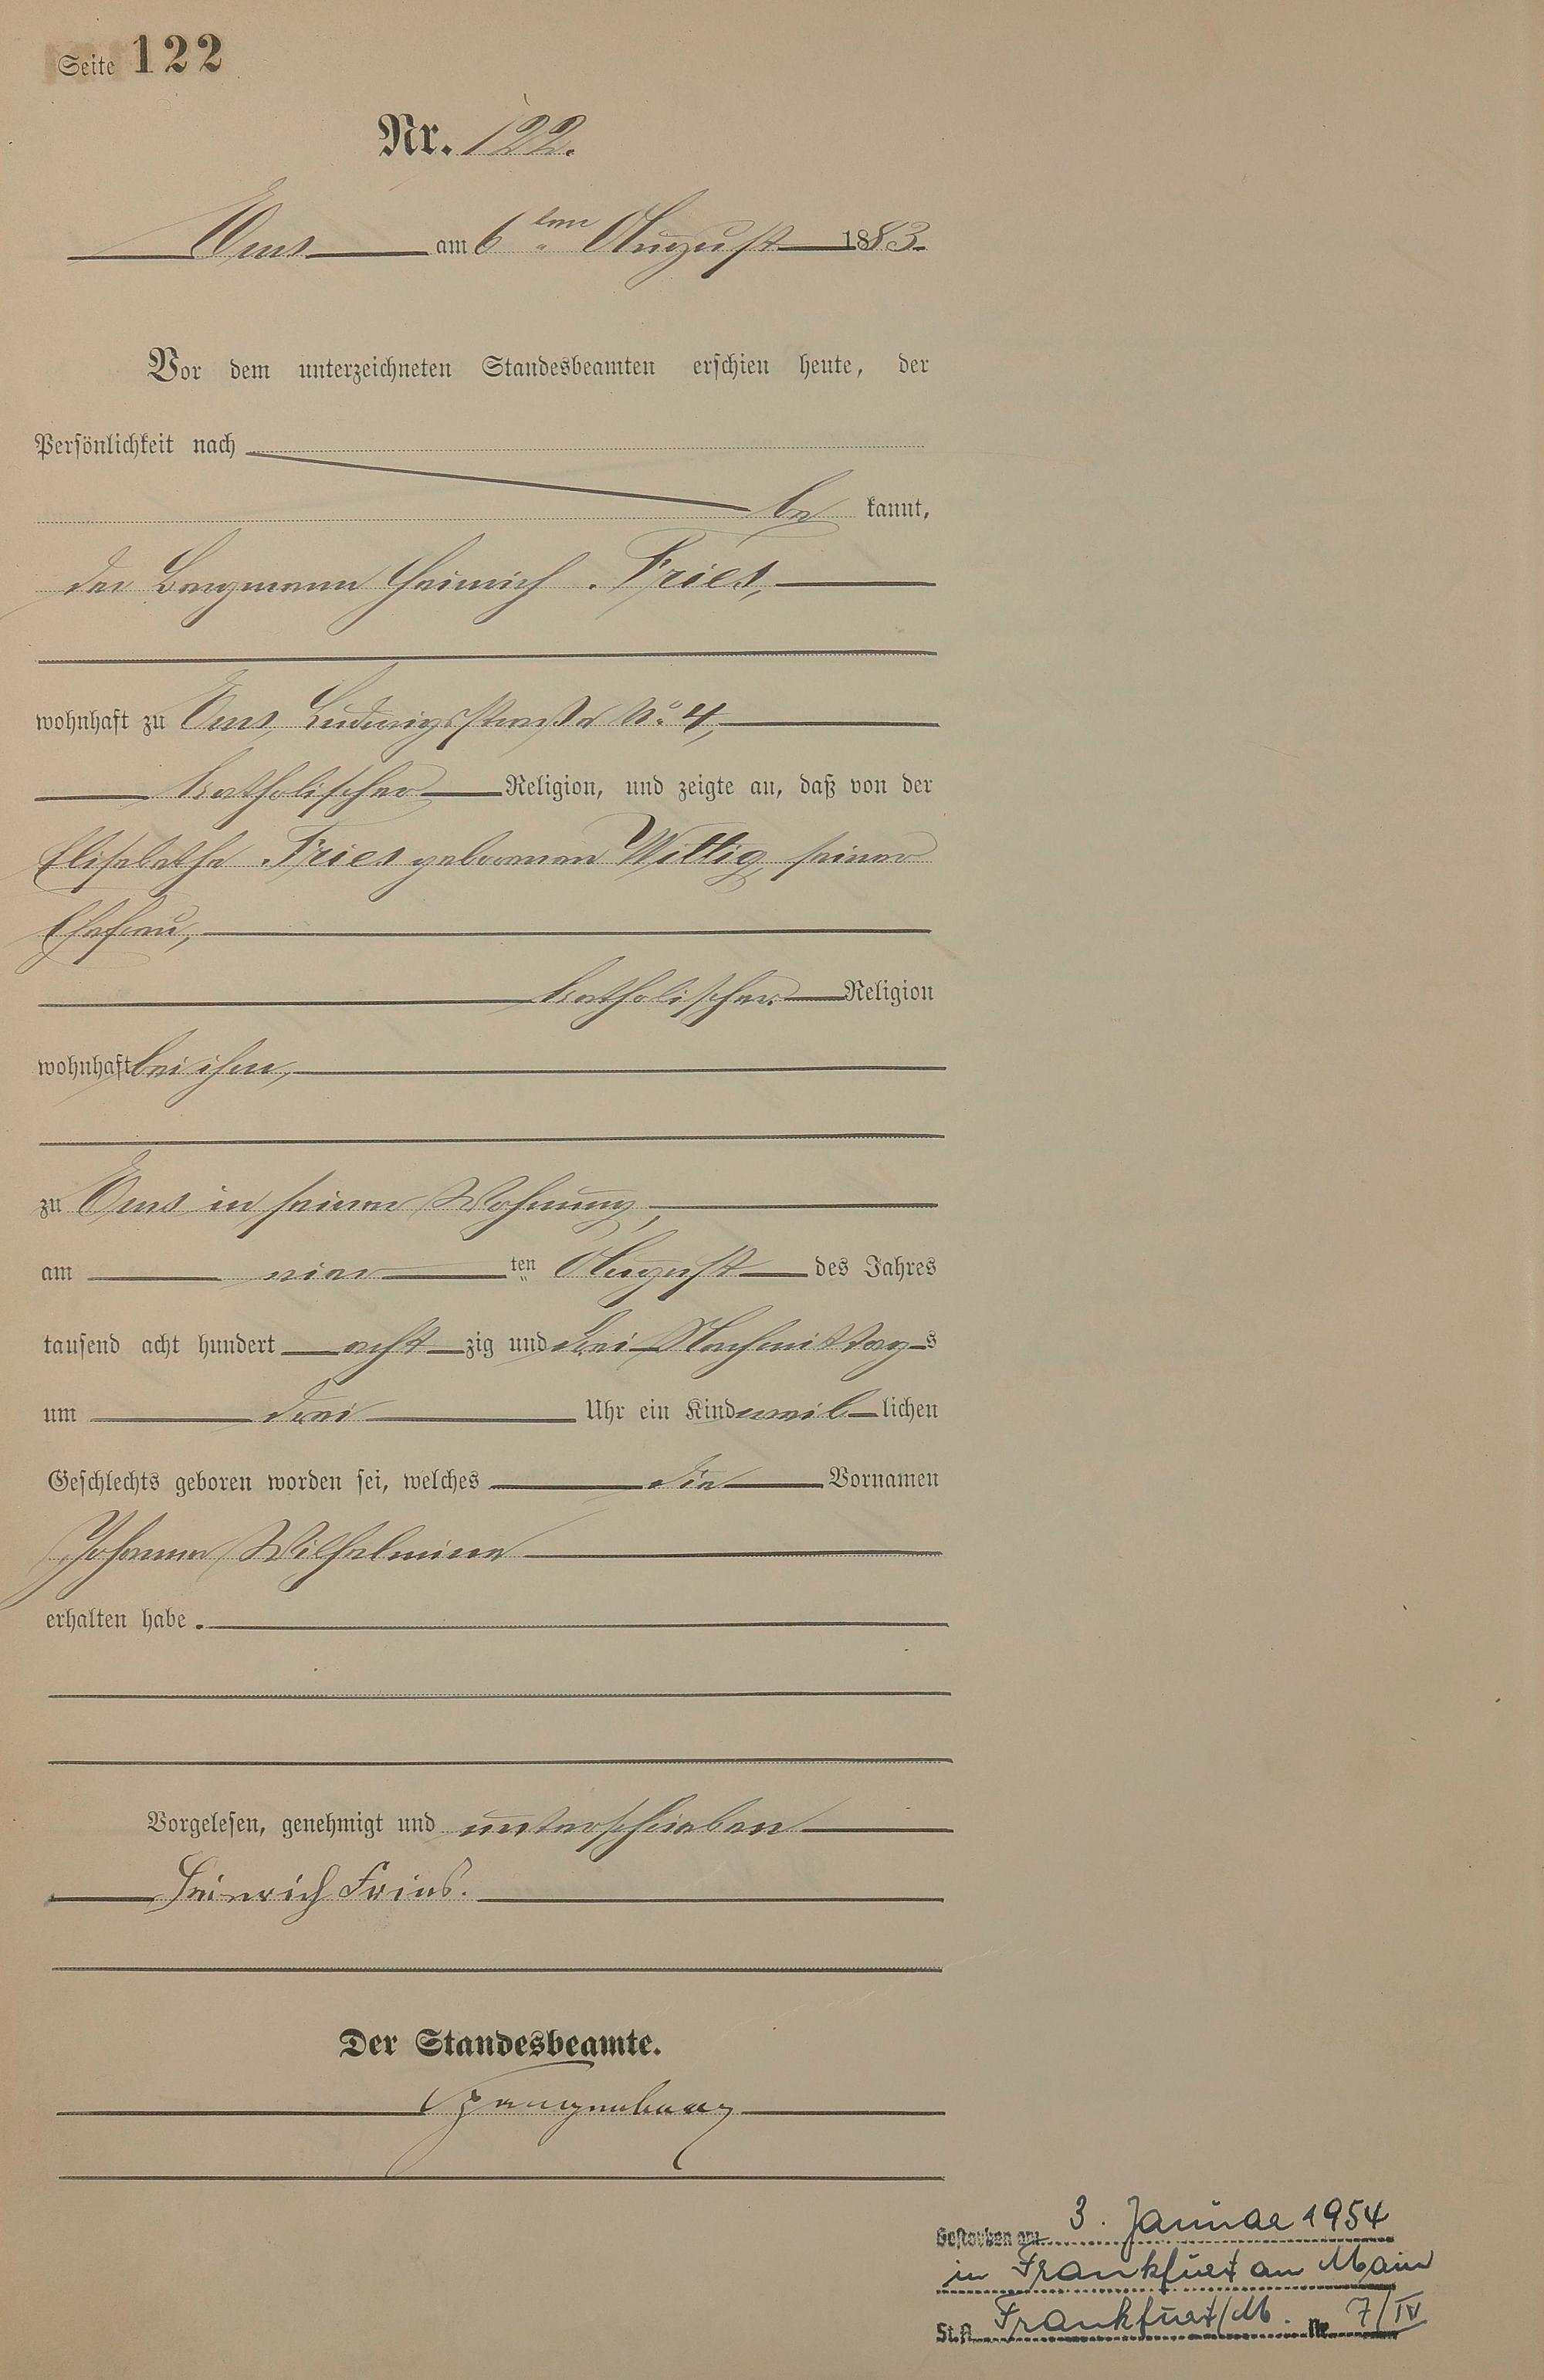 Seite 122
Nr. 122.
Ems am 6ten August 1883.
Vor dem unterzeichneten Standesbeamten erschien heute, der
Persönlichkeit nach
be kannt,
der Bergmann Heinrich Fries,
wohnhaft zu Ems, Ludwigsstraße No. 4,
katholischer Religion, und zeigte an, daß von der
Elisabetha Fries geborenen Wittig, seiner
Ehefrau,
katholischer Religion
wohnhaft bei ihm,
zu Ems in seiner Wohnung,
am vier ten August des Jahres
tausend acht hundert acht zig und drei Nachmittag s
um drei Uhr ein Kind weib lichen
Geschlechts geboren worden sei, welches die Vornamen
Johanna Wilhelmine
erhalten habe.
Vorgelesen, genehmigt und unterschrieben
Heinrich Fries.
Der Standesbeamte.
Spangenberg
Gestorben am 3. Januar 1954
in Frankfurt am Main
St.A. Frankfurt/M. Nr. 7/IV